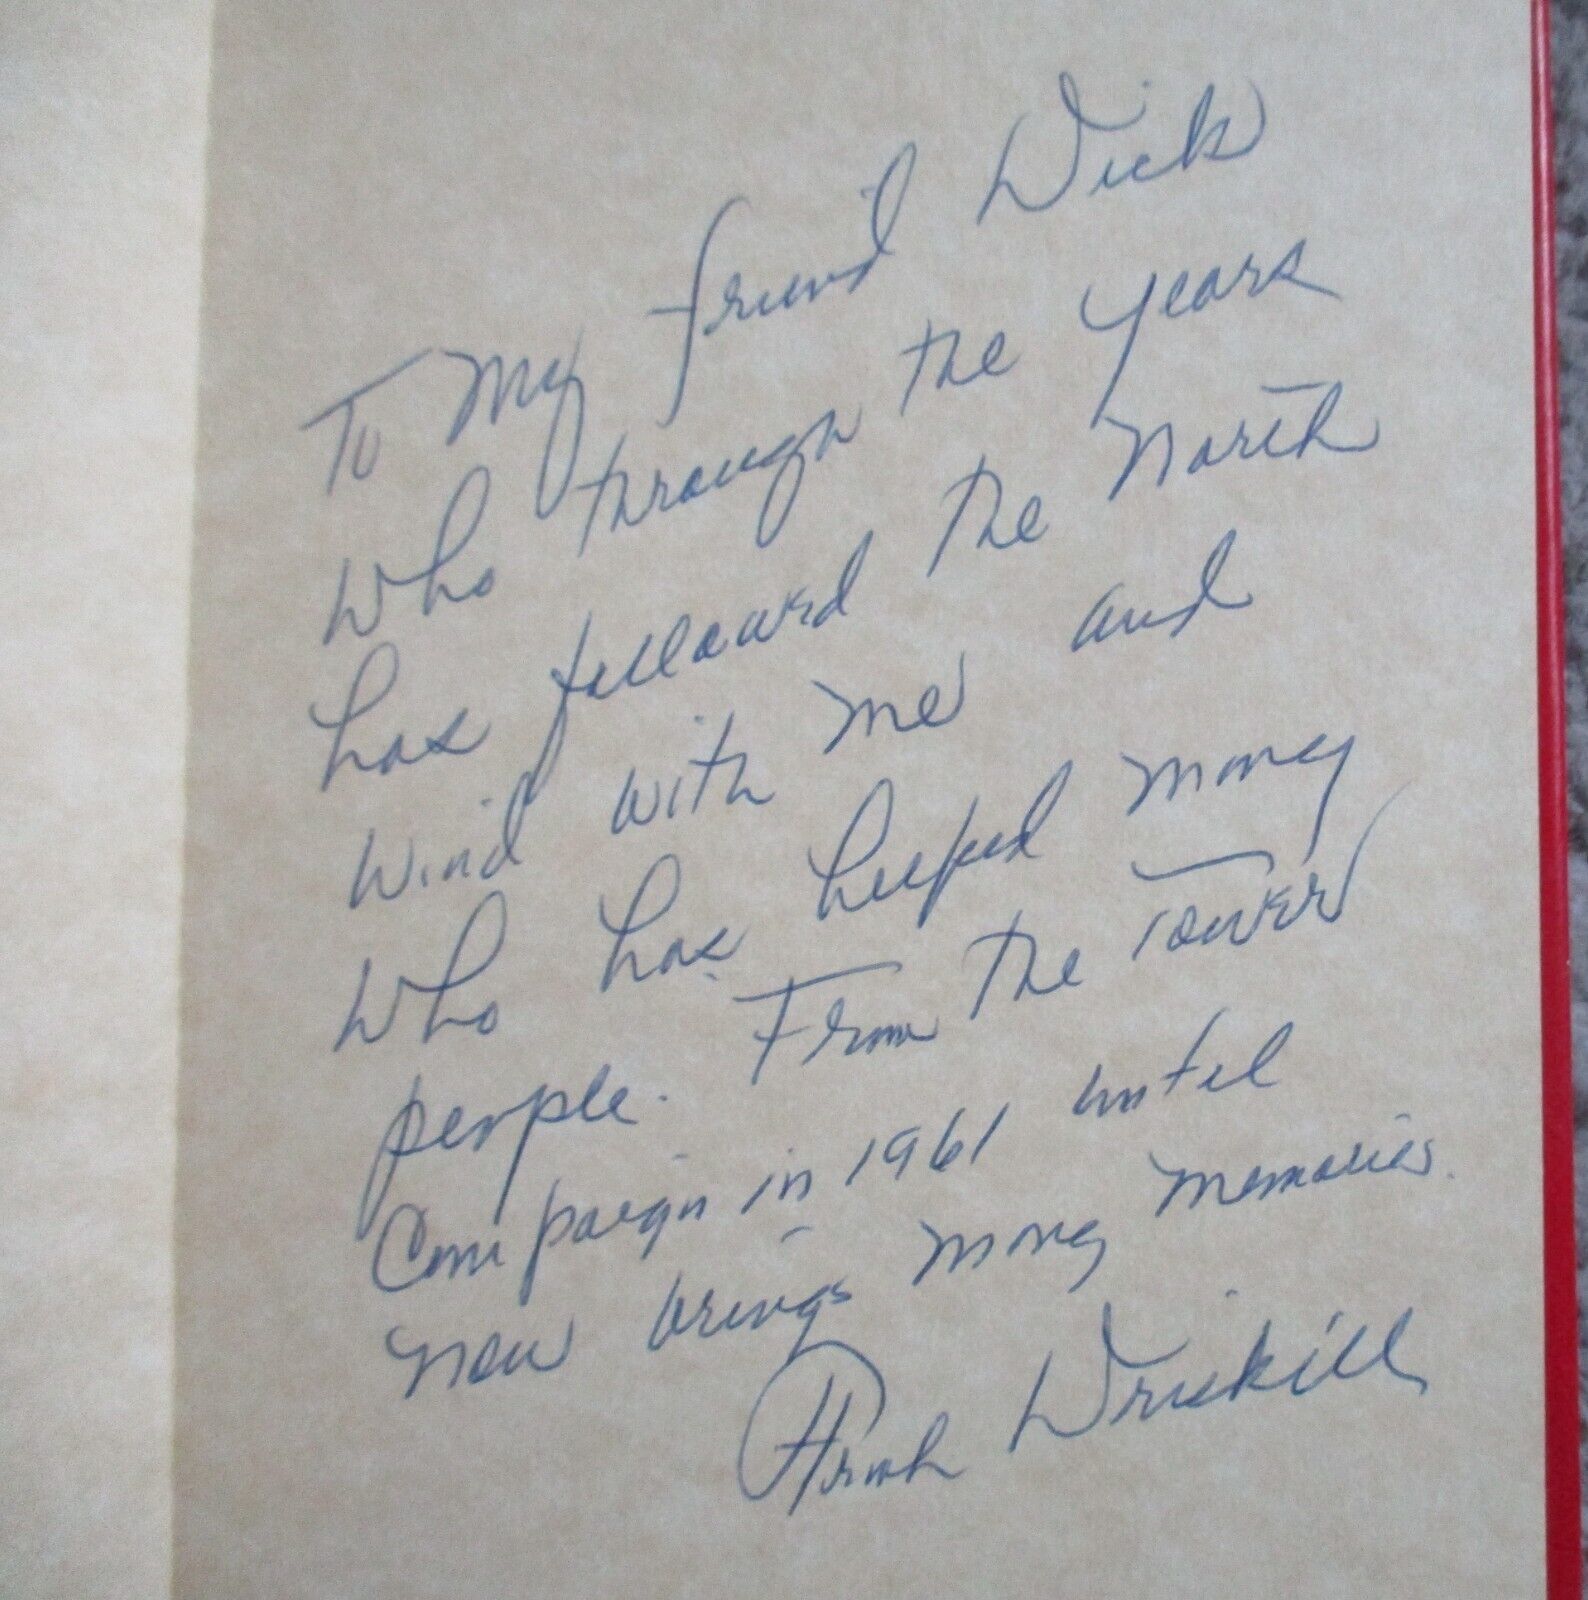 To My friend Dick
Who through the years
has followed the North
Wind with me and
Who has helped many
people. From the Tower
Campaign in 1961 until
now brings many memories.
Frank Driskill